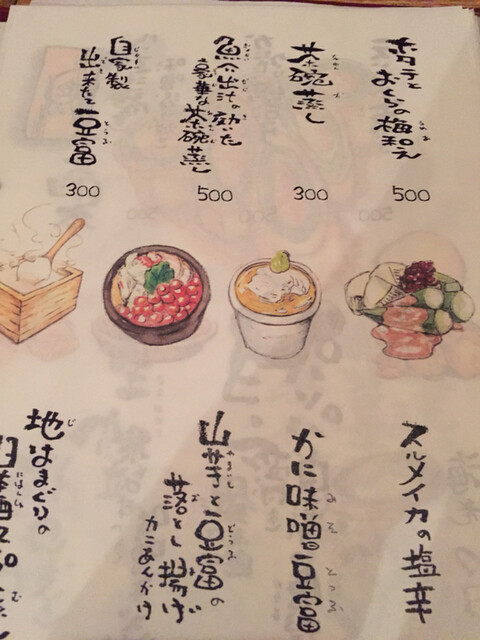 ホタテと
おくらの梅和え
500
茶碗蒸し
300
魚介出汁の効いた
豪華な茶碗蒸し
500
自家製
出来たて豆富
300
スルメイカの塩辛
かに味噌豆富
山芋と豆富の
落とし揚げ
カニあんかけ
地はまぐりの
日本酒